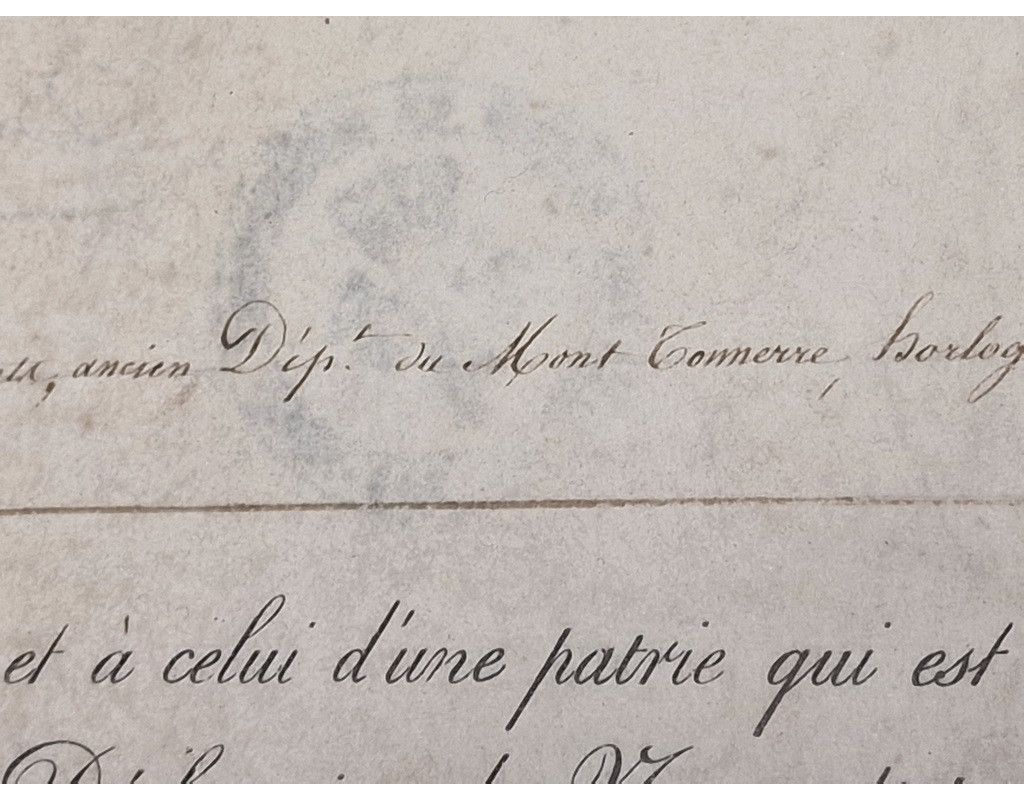 ancien Dép.t du Mont Tonnerre, horlog
et à celui d'une patrie qui est